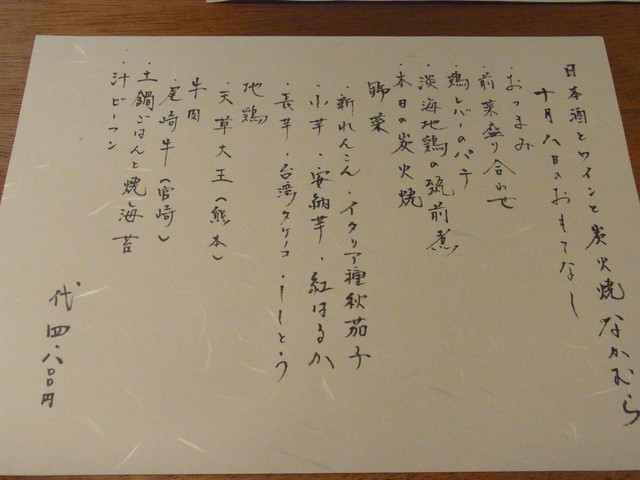 日本酒とワインと炭火焼なかむら
十月八日のおもてなし
・おつまみ
・前菜盛り合わせ
・鶏レバーのパテ
・淡海地鶏の筑前煮
・本日の炭火焼
野菜
・新れんこん・イタリア種秋茄子
・小芋・安納芋・紅はるか
・長芋・台湾タケノコ・ししとう
地鶏
・天草大王(熊本)
牛肉
・尾崎牛(宮崎)
・土鍋ごはんと焼海苔
・汁ビーフン
代 四八〇〇円